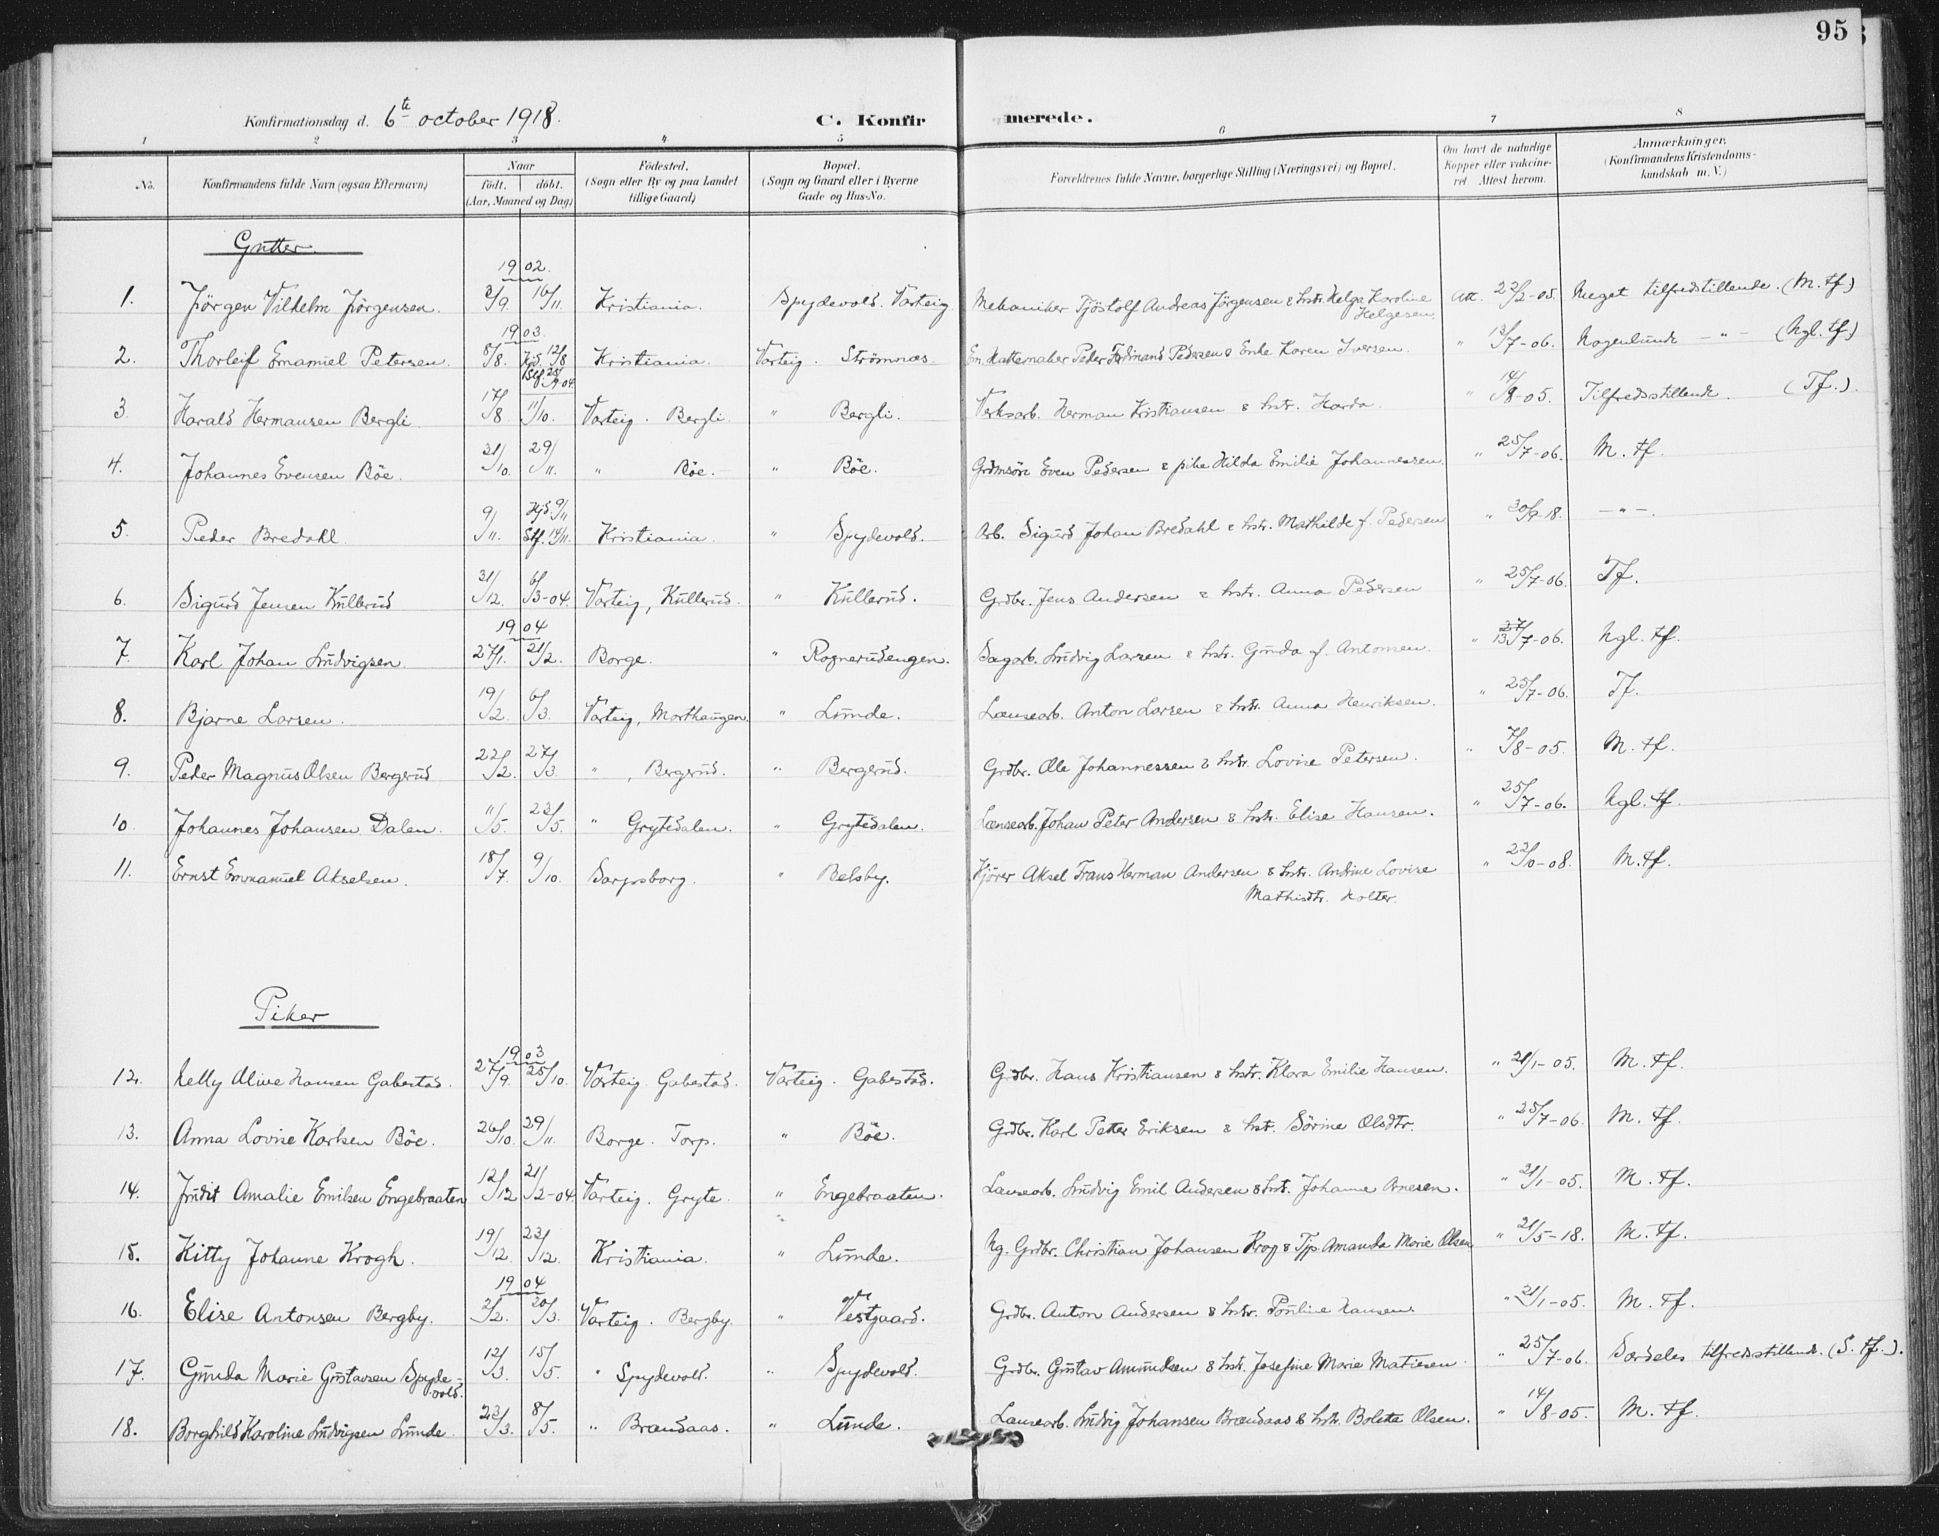 95
Konfirmationsdag d. 6te october 1918.
C. Konfirmerede.
1 2 3 4 5 6 7 8
No. Konfirmandens fulde Navn (ogsaa Efternavn) Naar födt. döbt. (Aar, Maaned og Dag) Födested. (Sogn eller By og paa Landet tillige Gaard) Bopæl. (Sogn og Gaard eller i Byerne Gade og Hus-No. Forældrenes fulde Navne, borgerlige Stilling (Næringsvei) og Bopæl. Om havt de naturlige Kopper eller vakcineret. Attest herom. Anmærkninger. (Konfirmandens Kristendomskundskab m. V.)
Gutter.
1902.
1. Jörgen Vilhelm Jörgensen. 2/9. 16/11. Kristiania. Spydevold. Varteig. Mekaniker Tjöstolf Andreas Jörgensen & hstr. Helga Karoline Helgesen. Att. 22/2-05. Meget tilfredstillende. (M. tf)
1903.
2. Thorleif Emanuel Petersen. 8/8. Hjd. 12/8 Kristiania. Varteig. Strömnæs. Em. Hattemaker Peder Ferdinand Pedersen & Enke Karen Iversen. " 13/7-06. Nogenlunde -"- (Ngl. tf)
3. Harald Hermansen Bergli. 17/8. 11/10. Varteig. Bergli. " Bergli. Verksarb. Herman Kristiansen & hstr. Harda. " 14/8-05. Tilfredsstillende. (Tf.)
4. Johannes Evensen Böe. 21/10. 29/11. " Böe. " Böe. Grdmsön Even Pedersen & pike Hilda Emilie Johannessen. " 25/7-06. M. tf.
5. Peder Bredahl. 9/11. Hjd. 9/11 Stf. 14/11. Kristiania. " Spydevold. Arb. Sigurd Johan Bredahl & hstr. Mathilde f. Pedersen " 30/9-18. -"-.
6. Sigurd Jensen Kullerud 31/12. 6/3-04. Varteig, Kullerud. " Kullerud. Grdbr. Jens Andersen & hstr. Anna Pedersen " 25/7-06. Tf.
1904
7. Karl Johan Ludvigsen. 27/1. 21/2. Borge. " Roznerudengen. Sagarb. Ludvig Larsen & hstr. Gunda f. Antonsen. " 13/7-06. Ngl. tf.
8. Bjarne Larsen. 19/2. 6/3. Varteig, Morthaugen. " Lunde. Lænsearb. Anton Larsen & hstr. Anna Henriksen. " 25/7-06. Tf.
9. Peder Magnus Olsen Bergerud 22/2. 27/3. " , Bergerud. " Bergerud. Grdbr. Ole Johannessen & hstr. Lovise Petersen. " 7/8-05. M. tf.
10. Johannes Johansen Dalen. 11/5. 23/5. " Grytedalen. " Grytedalen. Lænsearb. Johan Peter Andersen & hstr. Elise Hansen. " 25/7-06. Ngl. tf.
11. Ernst Emmanuel Akselsen. 18/7. 9/10. Sarpsborg. " Belsby. Kjörer Aksel Frans Herman Andersen & hstr. Andrine Lovise Mathisdtr. Holter. " 22/10-08. M. tf.
Piker
1903
12. Nelly Alive Hansen Gabestad. 27/9. 25/10. Varteig. Gabestad. Varteig. Gabestad. Grdbr. Hans Kristiansen & hstr. Klara Emilie Hansen. " 21/1-05. M. tf.
13. Anna Lovise Karlsen Böe. 26/10. 29/11. Borge. Torp. " Böe. Grdbr. Karl Petter Eriksen & hstr. Sörine Olsdtr. " 25/7-06 M. tf.
14. Judit Amalie Emilsen Engebraaten 12/12 21/2-04. Varteig. Gryte. " Engebraaten. Lænsearb. Ludvig Emil Andersen & hstr. Johanne Arnesen. " 21/1-05. M. tf.
15. Kitty Johanne Krogh. 19/12. 23/12. Kristiania. " Lunde. Ug. Grdbr. Christian Johansen Krog & Tjp. Amanda Marie Olsen " 21/5-18. M. tf.
1904
16. Elise Antonsen Bergby. 2/2. 20/3. Varteig. Bergby. " Vestgaard. Grdbr. Anton Andersen & hstr. Pauline Hansen. " 21/1-05. M. tf.
17. Gunda Marie Gustavsen Spydevold. 12/3. 15/5. " Spydevold. " Spydevold. Grdbr. Gustav Amundsen & hstr. Josefine Marie Matiesen. " 25/7-06. Særdeles tilfredsstillende. (S. tf.).
18. Borghild Karoline Ludvigsen Lunde. 23/3. 8/5. " Brændaas. " Lunde. Lænsearb. Ludvig Johansen Brændaas & hstr. Bolette Olsen. " 14/8-05. M. tf.